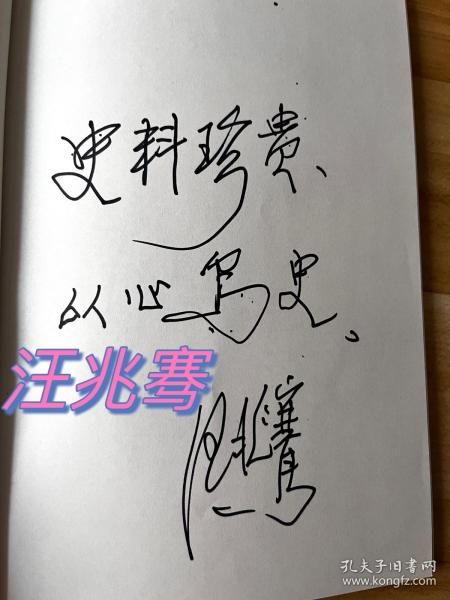 史料珍贵、
以心写史。
汪兆骞
汪兆骞
孔夫子旧书网
www.kongfz.com